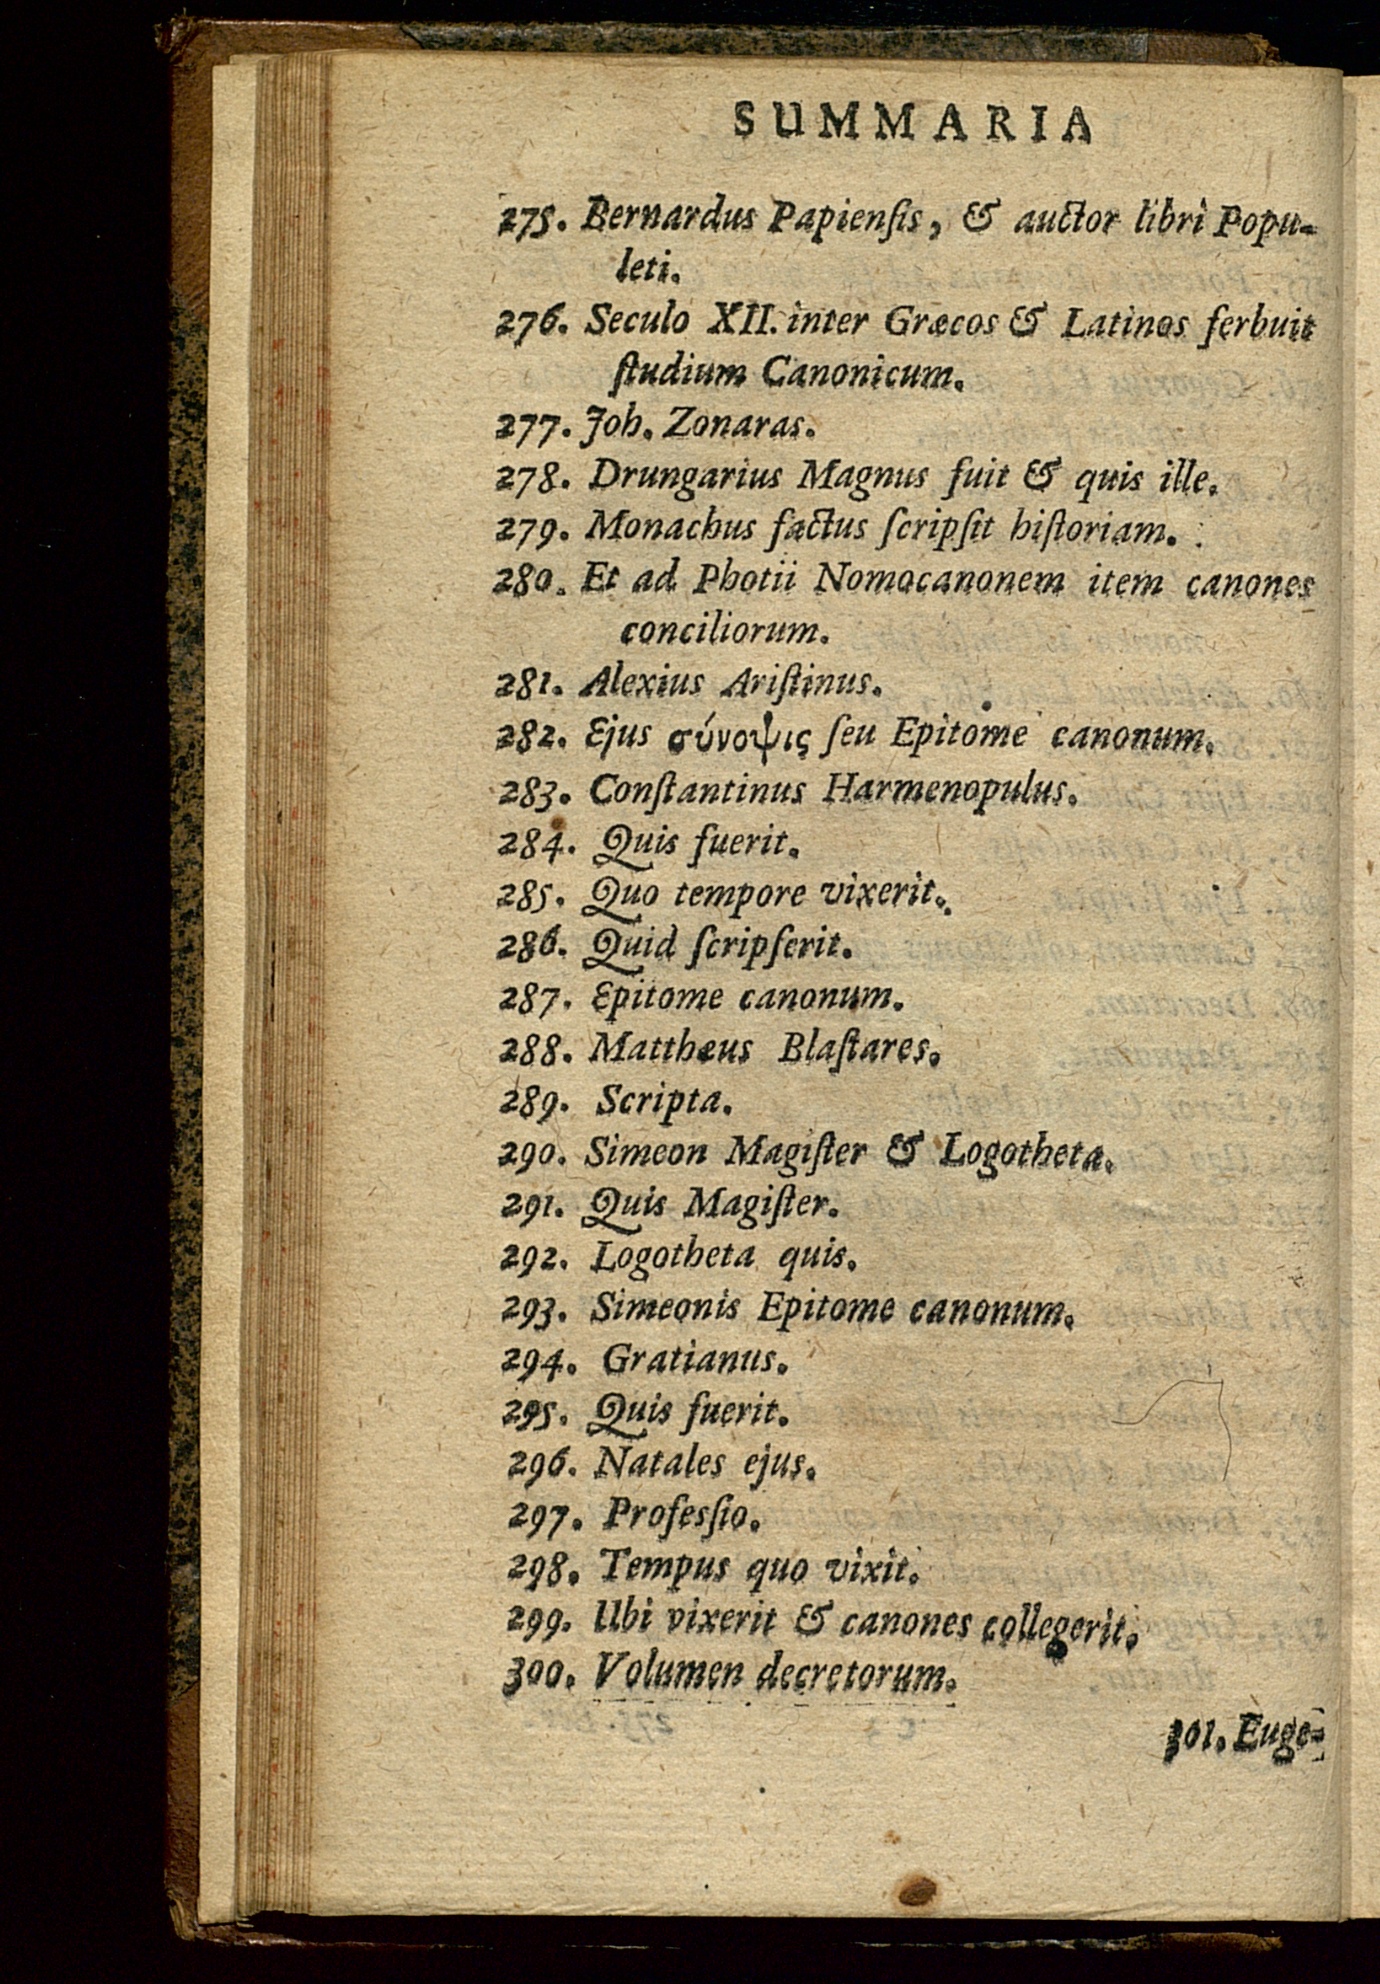 SUMMARIA
275. Bernardus Papienſis, & auctor libri Popu-
leti.
276. Seculo XII. inter Græcos & Latinos ferbuit
ſtudium Canonicum.
277. Joh. Zonaras.
278. Drungarius Magnus fuit & quis ille.
279. Monachus factus ſcripſit hiſtoriam.
280. Et ad Photii Nomocanonem item canones
conciliorum.
281. Alexius Ariſtinus.
282. Ejus σύνοψις ſeu Epitome canonum.
283. Conſtantinus Harmenopulus.
284. Quis fuerit.
285. Quo tempore vixerit.
286. Quid ſcripſerit.
287. Epitome canonum.
288. Mattheus Blaſtares.
289. Scripta.
290. Simeon Magiſter & Logotheta.
291. Quis Magiſter.
292. Logotheta quis.
293. Simeonis Epitome canonum.
294. Gratianus.
295. Quis fuerit.
296. Natales ejus.
297. Profesſio.
298. Tempus quo vixit.
299. Ubi vixerit & canones collegerit.
300. Volumen decretorum.
301. Euge-